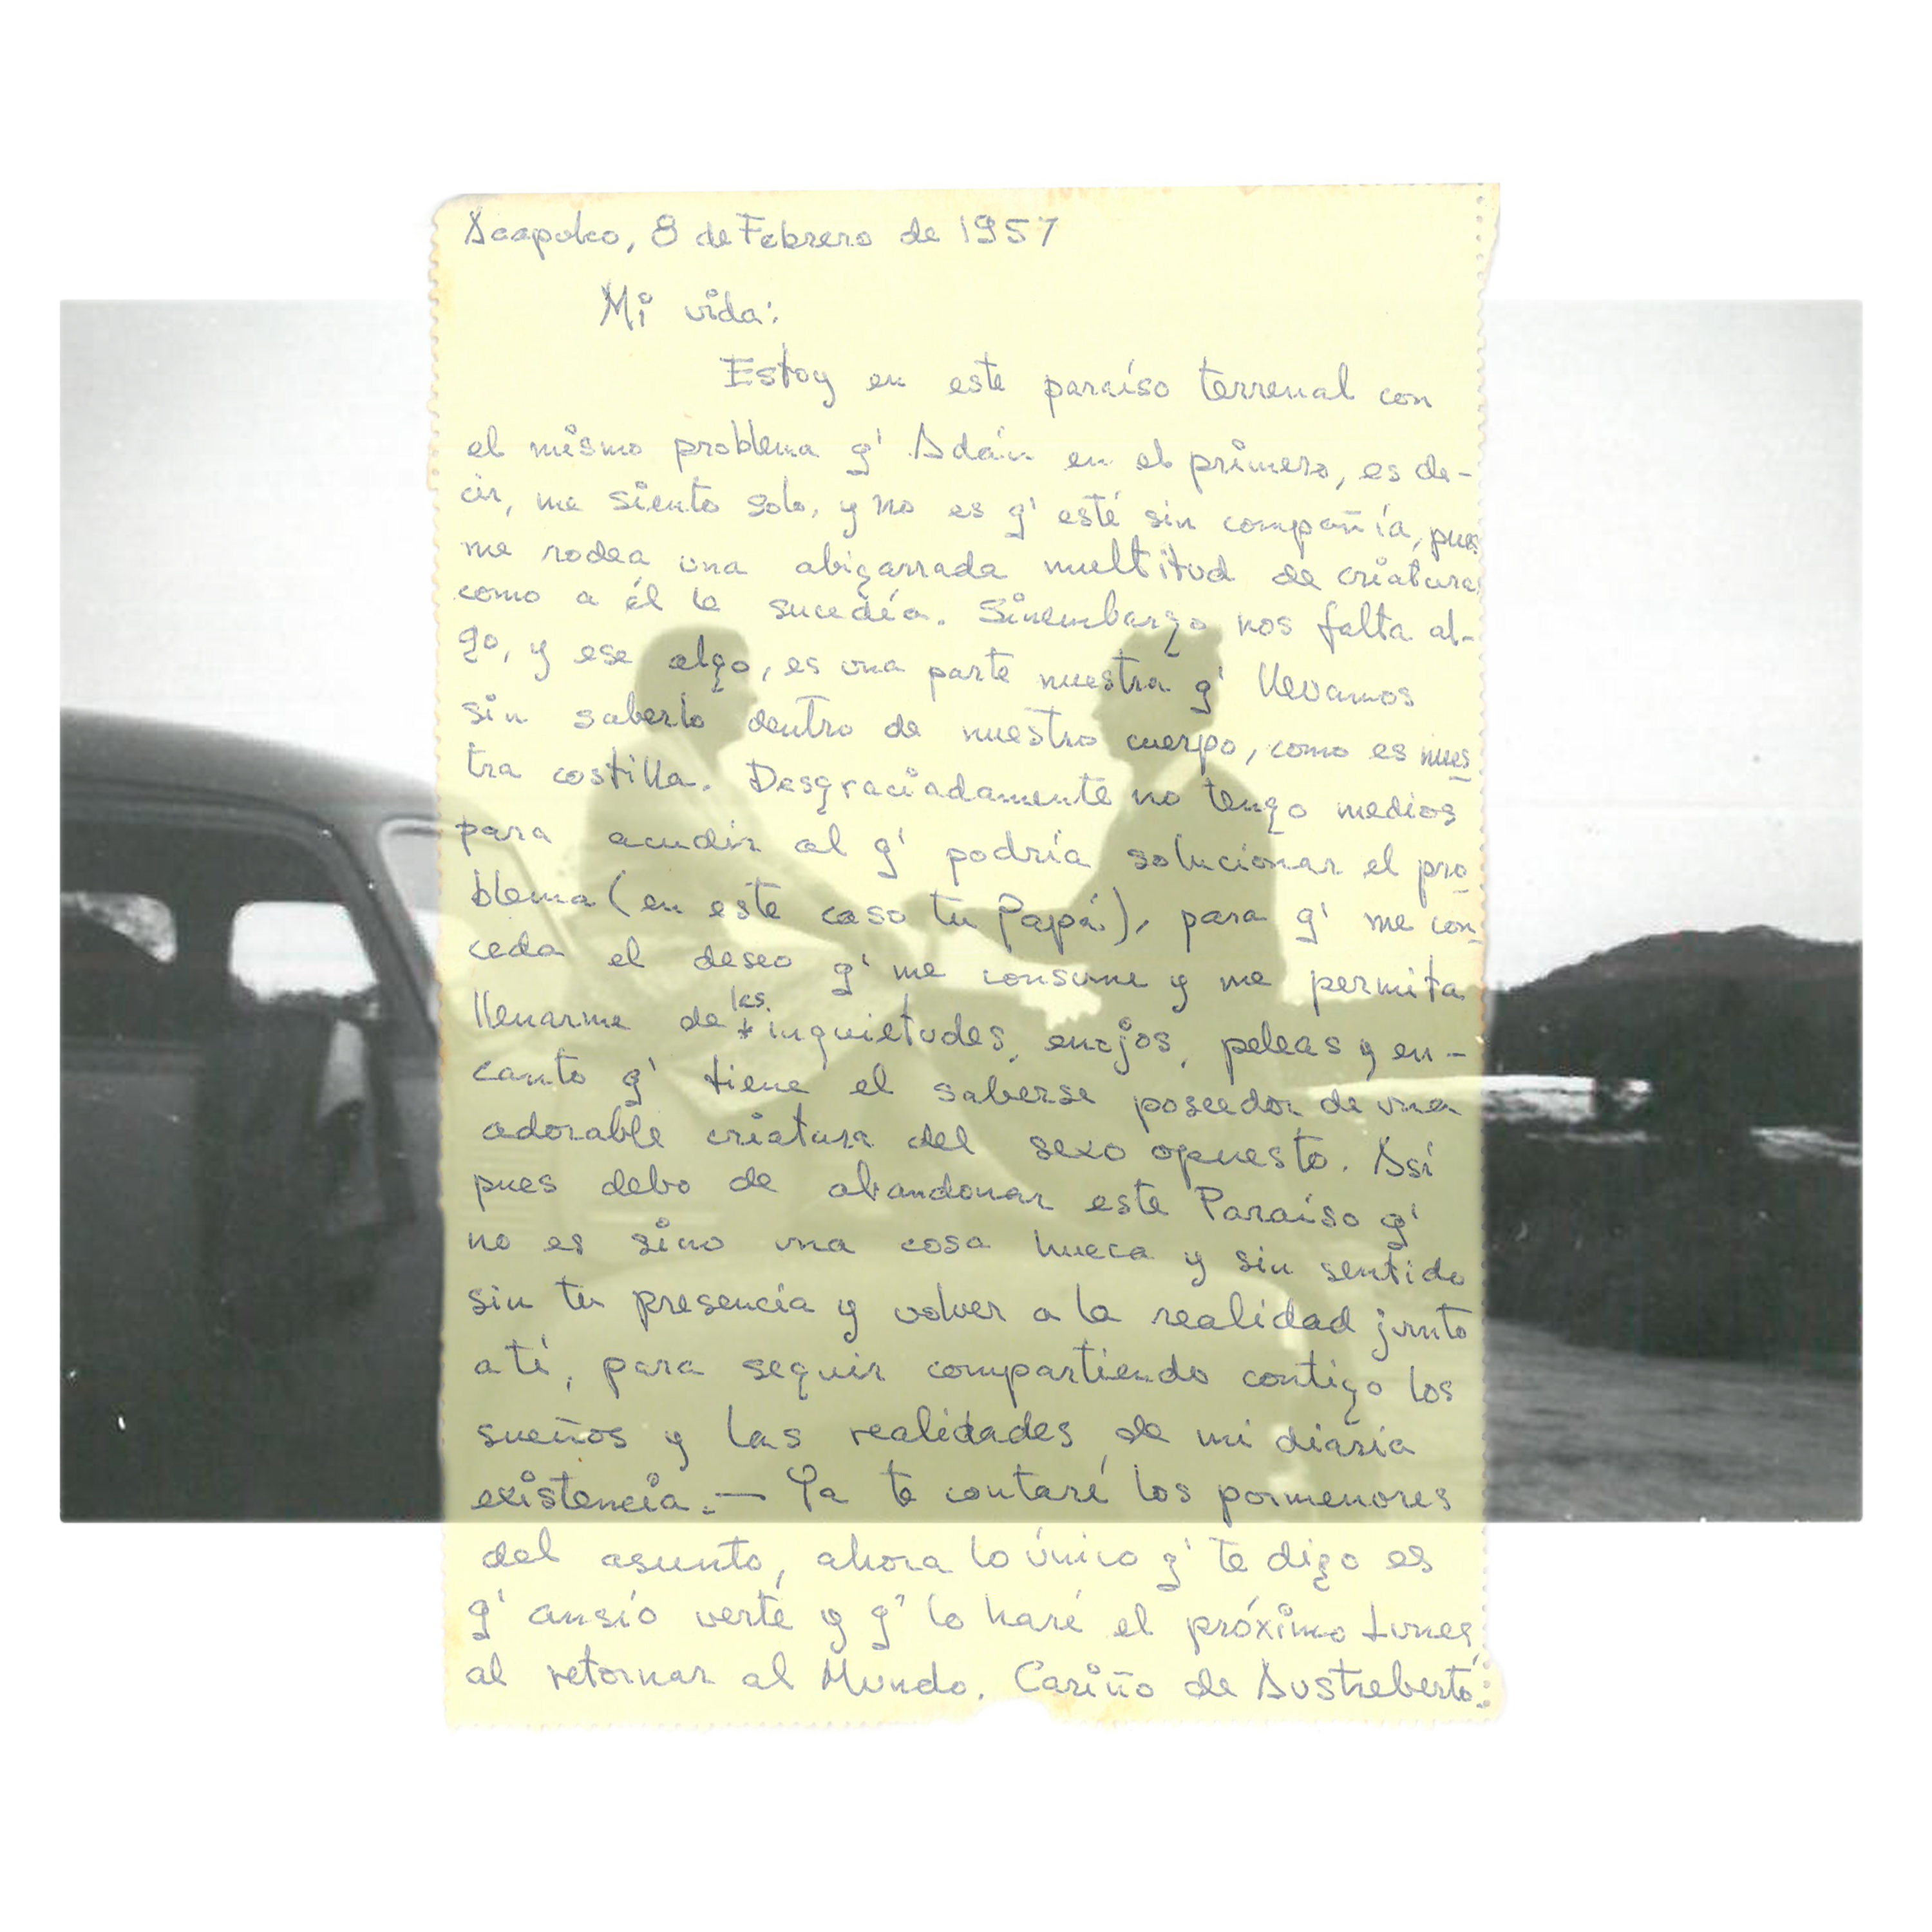 Acapulco, 8 de Febrero de 1957
Mi vida:
Estoy en este paraíso terrenal con
el mismo problema q' Adán en el primero, es de-
cir, me siento solo, y no es q' esté sin compañía, pues
me rodea una abigarrada multitud de criaturas
como a él le sucedía. Sinembargo nos falta al-
go, y ese algo, es una parte nuestra q' llevamos
sin saberlo dentro de nuestro cuerpo, como es nues
tra costilla. Desgraciadamente no tengo medios
para acudir al q' podría solucionar el pro
blema (en este caso tu Papá), para q' me con
ceda el deseo q' me consume y me permita
llenarme de las inquietudes, enojos, peleas y en-
canto q' tiene el saberse poseedor de una
adorable criatura del sexo opuesto. Así
pues debo de abandonar este Paraíso q'
no es sino una cosa hueca y sin sentido
sin tu presencia y volver a la realidad junto
a tí, para seguir compartiendo contigo los
sueños y las realidades de mi diaria
existencia.— Ya te contaré los pormenores
del asunto, ahora lo único q' te digo es
q' ansío verte y q' lo haré el próximo Lunes,
al retornar al Mundo. Cariño de Austreberto.